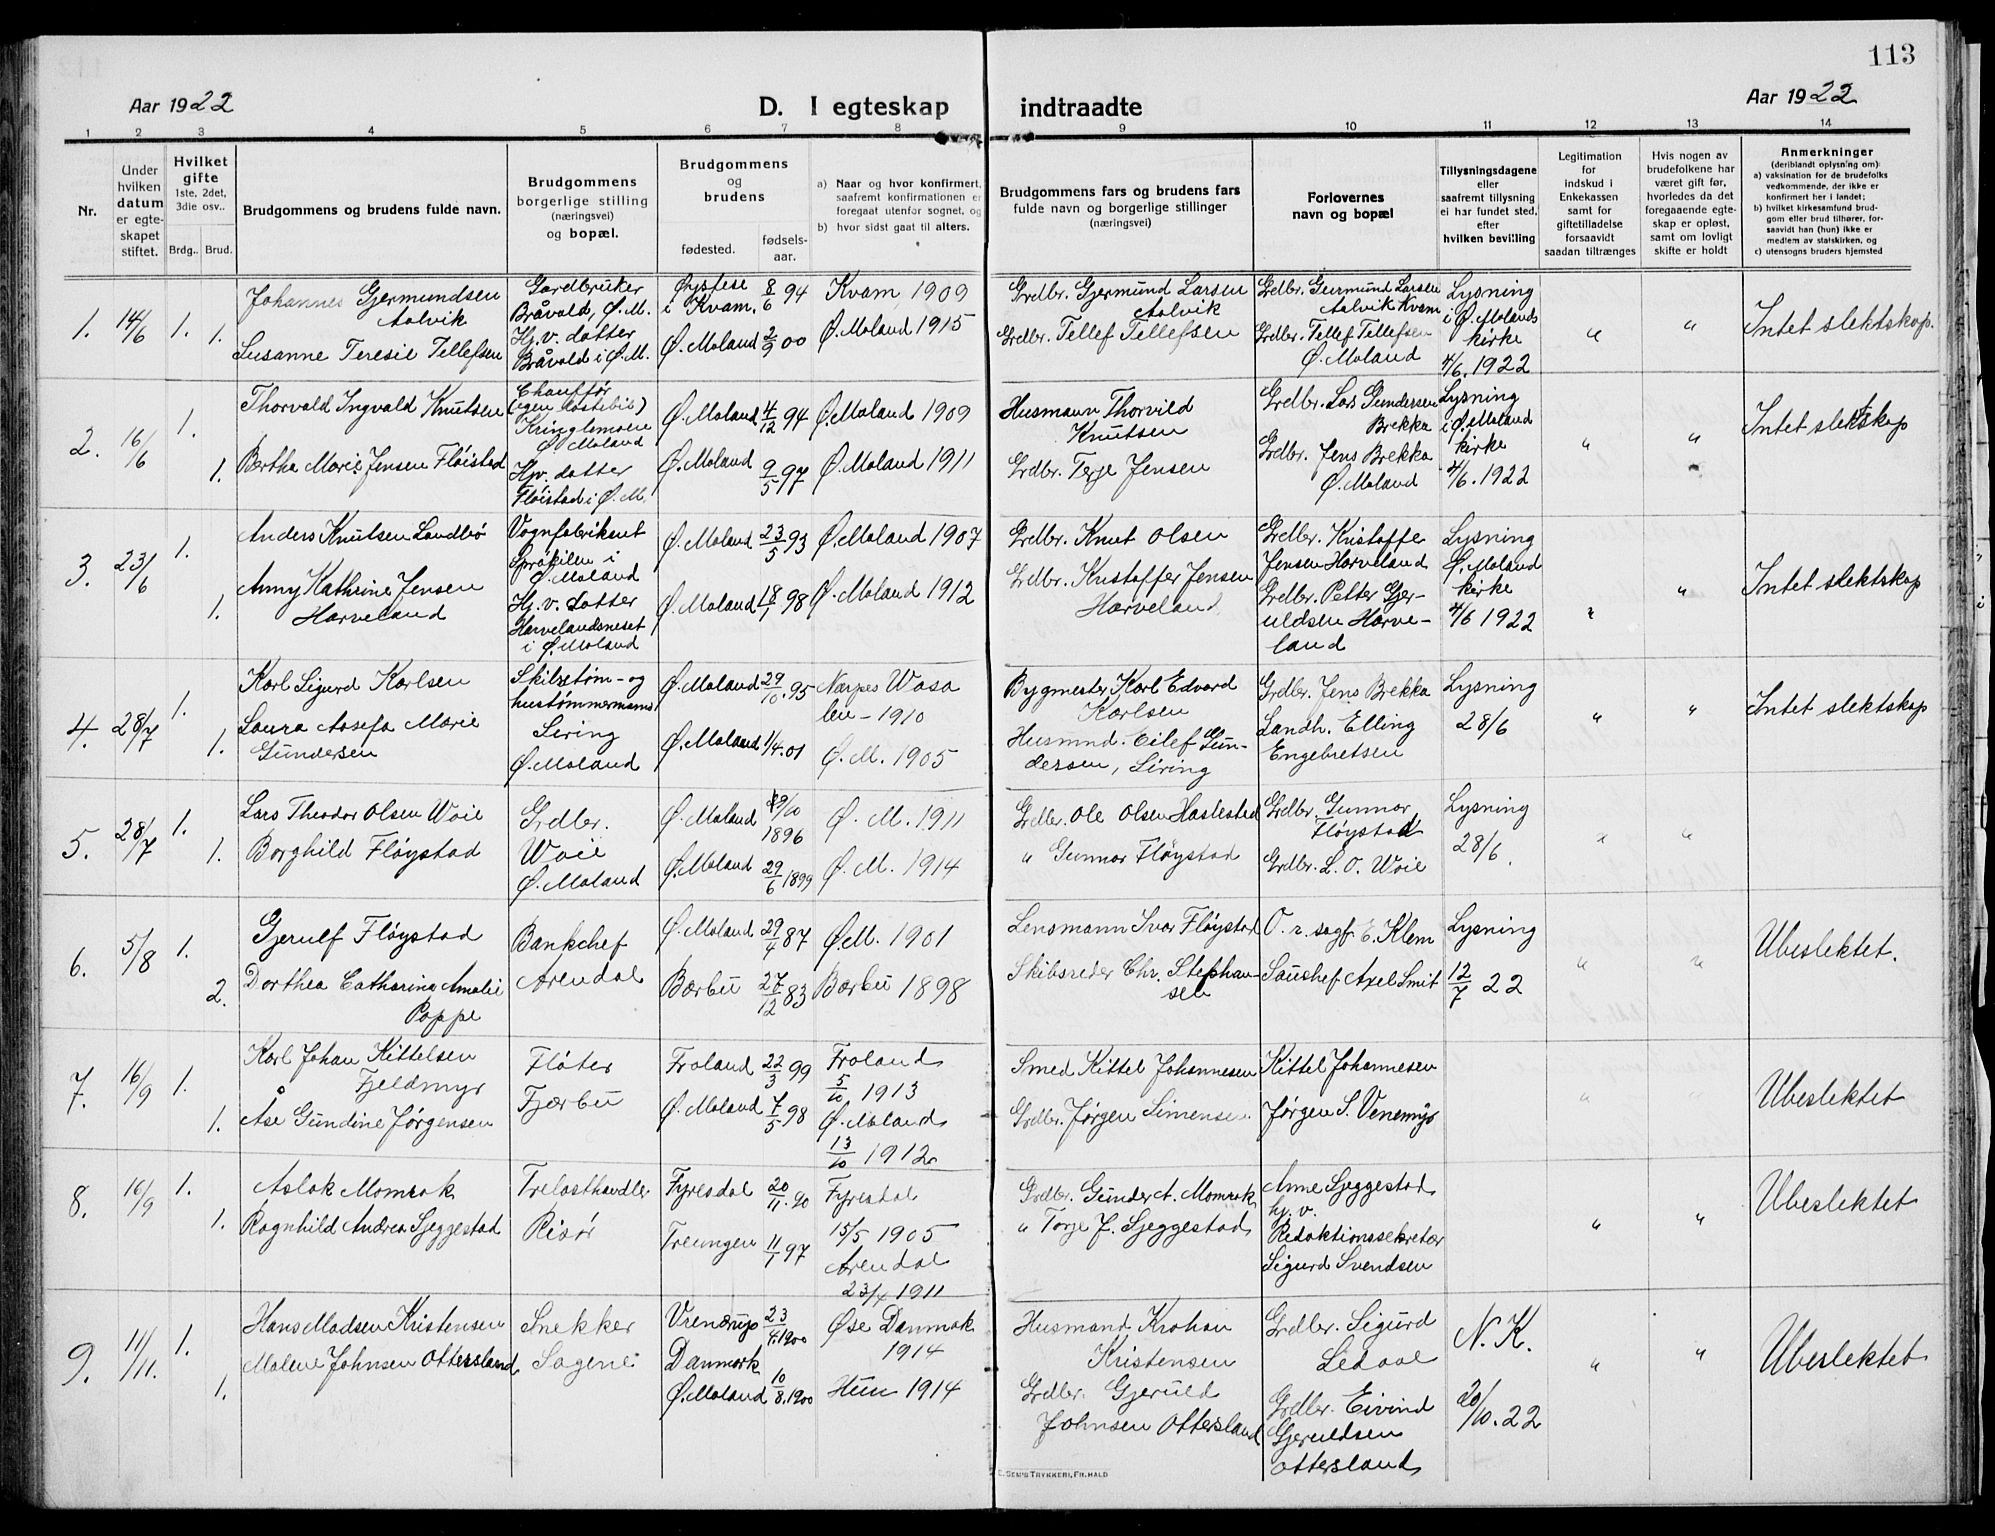 113
Aar 1922
D. I egteskap indtraadte
Aar 1922
1 2 3 4 5 6 7 8 9 10 11 12 13 14
Nr.
Under hvilken datum er egte-skapet stiftet.
Hvilket gifte 1ste, 2det, 3die osv..
Brdg.. Brud.
Brudgommens og brudens fulde navn.
Brudgommens borgerlige stilling (næringsvei) og bopæl.
Brudgommens og brudens
fødested.
fødsels-aar.
a) Naar og hvor konfirmert, saafremt konfirmationen er foregaat utenfor sognet, og
b) hvor sidst gaat til alters.
Brudgommens fars og brudens fars fulde navn og borgerlige stillinger (næringsvei)
Forlovernes navn og bopæl
Tillysningsdagene eller saafremt tillysning ei har fundet sted, efter hvilken bevilling
Legitimation for indskud i Enkekassen samt for giftetilladelse forsaavidt saadan tiltrænges
Hvis nogen av brudefolkene har været gift før, hvorledes da det foregaaende egte-skap er opløst, samt om lovlig skifte er holdt
Anmerkninger (deriblandt oplysning om):
a) vaksination for de brudefolks vedkommende, der ikke er konfirmert her i landet;
b) hvilket kirkesamfund brud-gom eller brud tilhører, for-saavidt han (hun) ikke er medlem av statskirken, og
c) utensogns bruders hjemsted
1. 14/6 1. 1.
Johannes Gjermundsen
Aalvik
Susanne Teresie Tellefsen
Gardbruker
Bråvold, Ø.M.
Hj.v. datter
Bråvold i Ø.M.
Øystese
i Kvam.
8/6 94
Kvam 1909
Ø. Moland 2/9 00
Ø. Moland 1915
Grdbr. Gjermund Larsen
Aalvik
Grdbr. Tellef Tellefsen
Grdbr. Germund Larsen
Aalvik Kvam
Grdbr. Tellef Tellefsen
Ø. Moland
Lysning
i Ø. Molands
kirke
4/6. 1922
" "
Intet slektskap.
2. 16/6 1. 1.
Thorvald Ingvald Knutsen
Bertha Marie Jensen Fløistad
Chauffør
(egen lastebil)
Kringlemoen
Ø. Moland
Hjv. datter
Fløistad i Ø.M.
Ø. Moland 4/12 94
Ø. Moland 1909
Ø. Moland 9/5 97
Ø. Moland 1911
Husmann Thorvild
Knutsen
Grdbr. Terje Jensen
Grdbr. Lars Gundersen
Brekka
Grdbr. Jens Brekka
Ø. Moland
Lysning
i Ø. Moland
kirke
4/6. 1922
" "
Intet slektskap
3. 23/6 1. 1.
Anders Knutsen Landbø
Anny Kathrine Jensen
Harveland
Vognfabrikant
Språkilen i
Ø. Moland
Hj.v. datter
Harvelandsneset
i Ø. Moland
Ø. Moland 23/5 93
Ø. Moland 1907
Ø. Moland 18/1 98
Ø. Moland 1912
Grdbr. Knut Olsen
Grdbr. Kristoffer Jensen
Harveland
Grdbr. Kristoffe
Jensen Harveland
Grdbr. Petter Gjer-
uldsen Harve-
land
Lysning
Ø. Moland
kirke
4/6 1922
" "
Intet slektskap
4. 28/7 1. 1.
Karl Sigurd Karlsen
Laura Josefa Marie
Gundersen
Skibstøm- og
hustømmermand
Liring
Ø. Moland
Ø. Moland 29/10. 95
Nærpes Wasa
len - 1910
Ø. Moland 1/4. 01
Ø. M. 1905
Bygmester Karl Edvard
Karlsen
Husmnd. Eilef Gun-
dersen, Liring
Grdbr. Jens Brekka
Landh. Elling
Engebretsen
Lysning
28/6
" "
Intet slektskap
5. 28/7 1. 1.
Lars Theodor Olsen Woie
Borghild Fløystad
Grdbr.
Woie
Ø. Moland
Ø. Moland /10 1896
Ø. M. 1911
Ø. Moland 29/6 1899
Ø. M. 1914
Grdbr. Ole Olsen Haslestad
" Gunnar Fløystad
Grdbr. Gunnar
Fløystad
Grdbr. L. O. Woie
Lysning
28/6.
" "
6. 5/8 1. 2.
Gjerulf Fløystad
Dorthea Catharina Amalie
Poppe
Bankchef
Arendal
Ø. Moland 29/4 87
Ø.M. 1901
Barbu 27/12 83
Barbu 1898
Lensmann Ivar Fløystad
Skibsreder Chr. Stephan-
sen
O. r. sagf. E. Klem
Lauschef Axel Smit
Lysning
12/7 22
" "
Ubeslektet.
7. 16/9 1. 1.
Karl Johan Kittelsen
Fjeldmyr
Åse Gundine Jørgensen
Fløter
Fjærbu
Froland 22/3 99
Froland
5/10. 1913
Ø. Moland 7/5 98
Ø. Moland
13/10 1912
Smed Kittel Johannesen
Grdbr. Jørgen Simensen
Kittel Johannesen
Jørgen S. Venemyr
" "
Ubeslektet
8. 16/9 1. 1.
Aslak Momrak
Ragnhild Andrea Sjeggestad
Trelasthandler
Risør
Fyresdal 20/11. 90
Fyresdal
15/5 1905
Treungen 11/1 97
Arendal
23/4 1911
Grdbr. Gunder A. Momrak
" Torje J. Sjeggestad
Anne Sjeggestad
hj. v.
Redaktionssekretær
Sigurd Svendsen
" "
Ubeslektet
9. 11/11. 1. 1.
Hans Madsen Kristensen
Malene Johnsen Ottersland
Snekker
Sagene
Vrendrup
Danmark
23/4. 1900
Øse Danmark
1914
Ø. Moland 10/8. 1900
Hun 1914
Husmand Krohan
Kristensen
Grdbr. Gjeruld
Johnsen Ottersland
Grdbr. Sigurd
Ledaal
Grdbr. Eivind
Gjeruldsen
Ottersland
N. K.
20/10. 22
" "
Ubeslektet
E. SEM'S TRYKKERI, FR.HALD